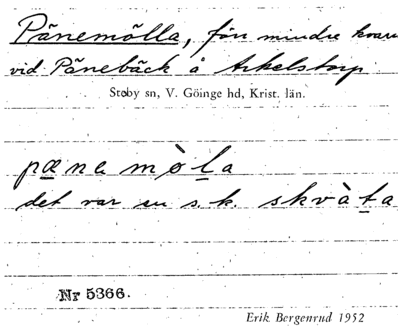 Pänemölla, förr mindre kvarn
vid Pänebäck å Arkelstorp
Stoby sn, V. Göinge hd, Krist. län.
pæna mòla
det var en s.k. skvàta
Nr 5366.
Erik Bergenrud 1952